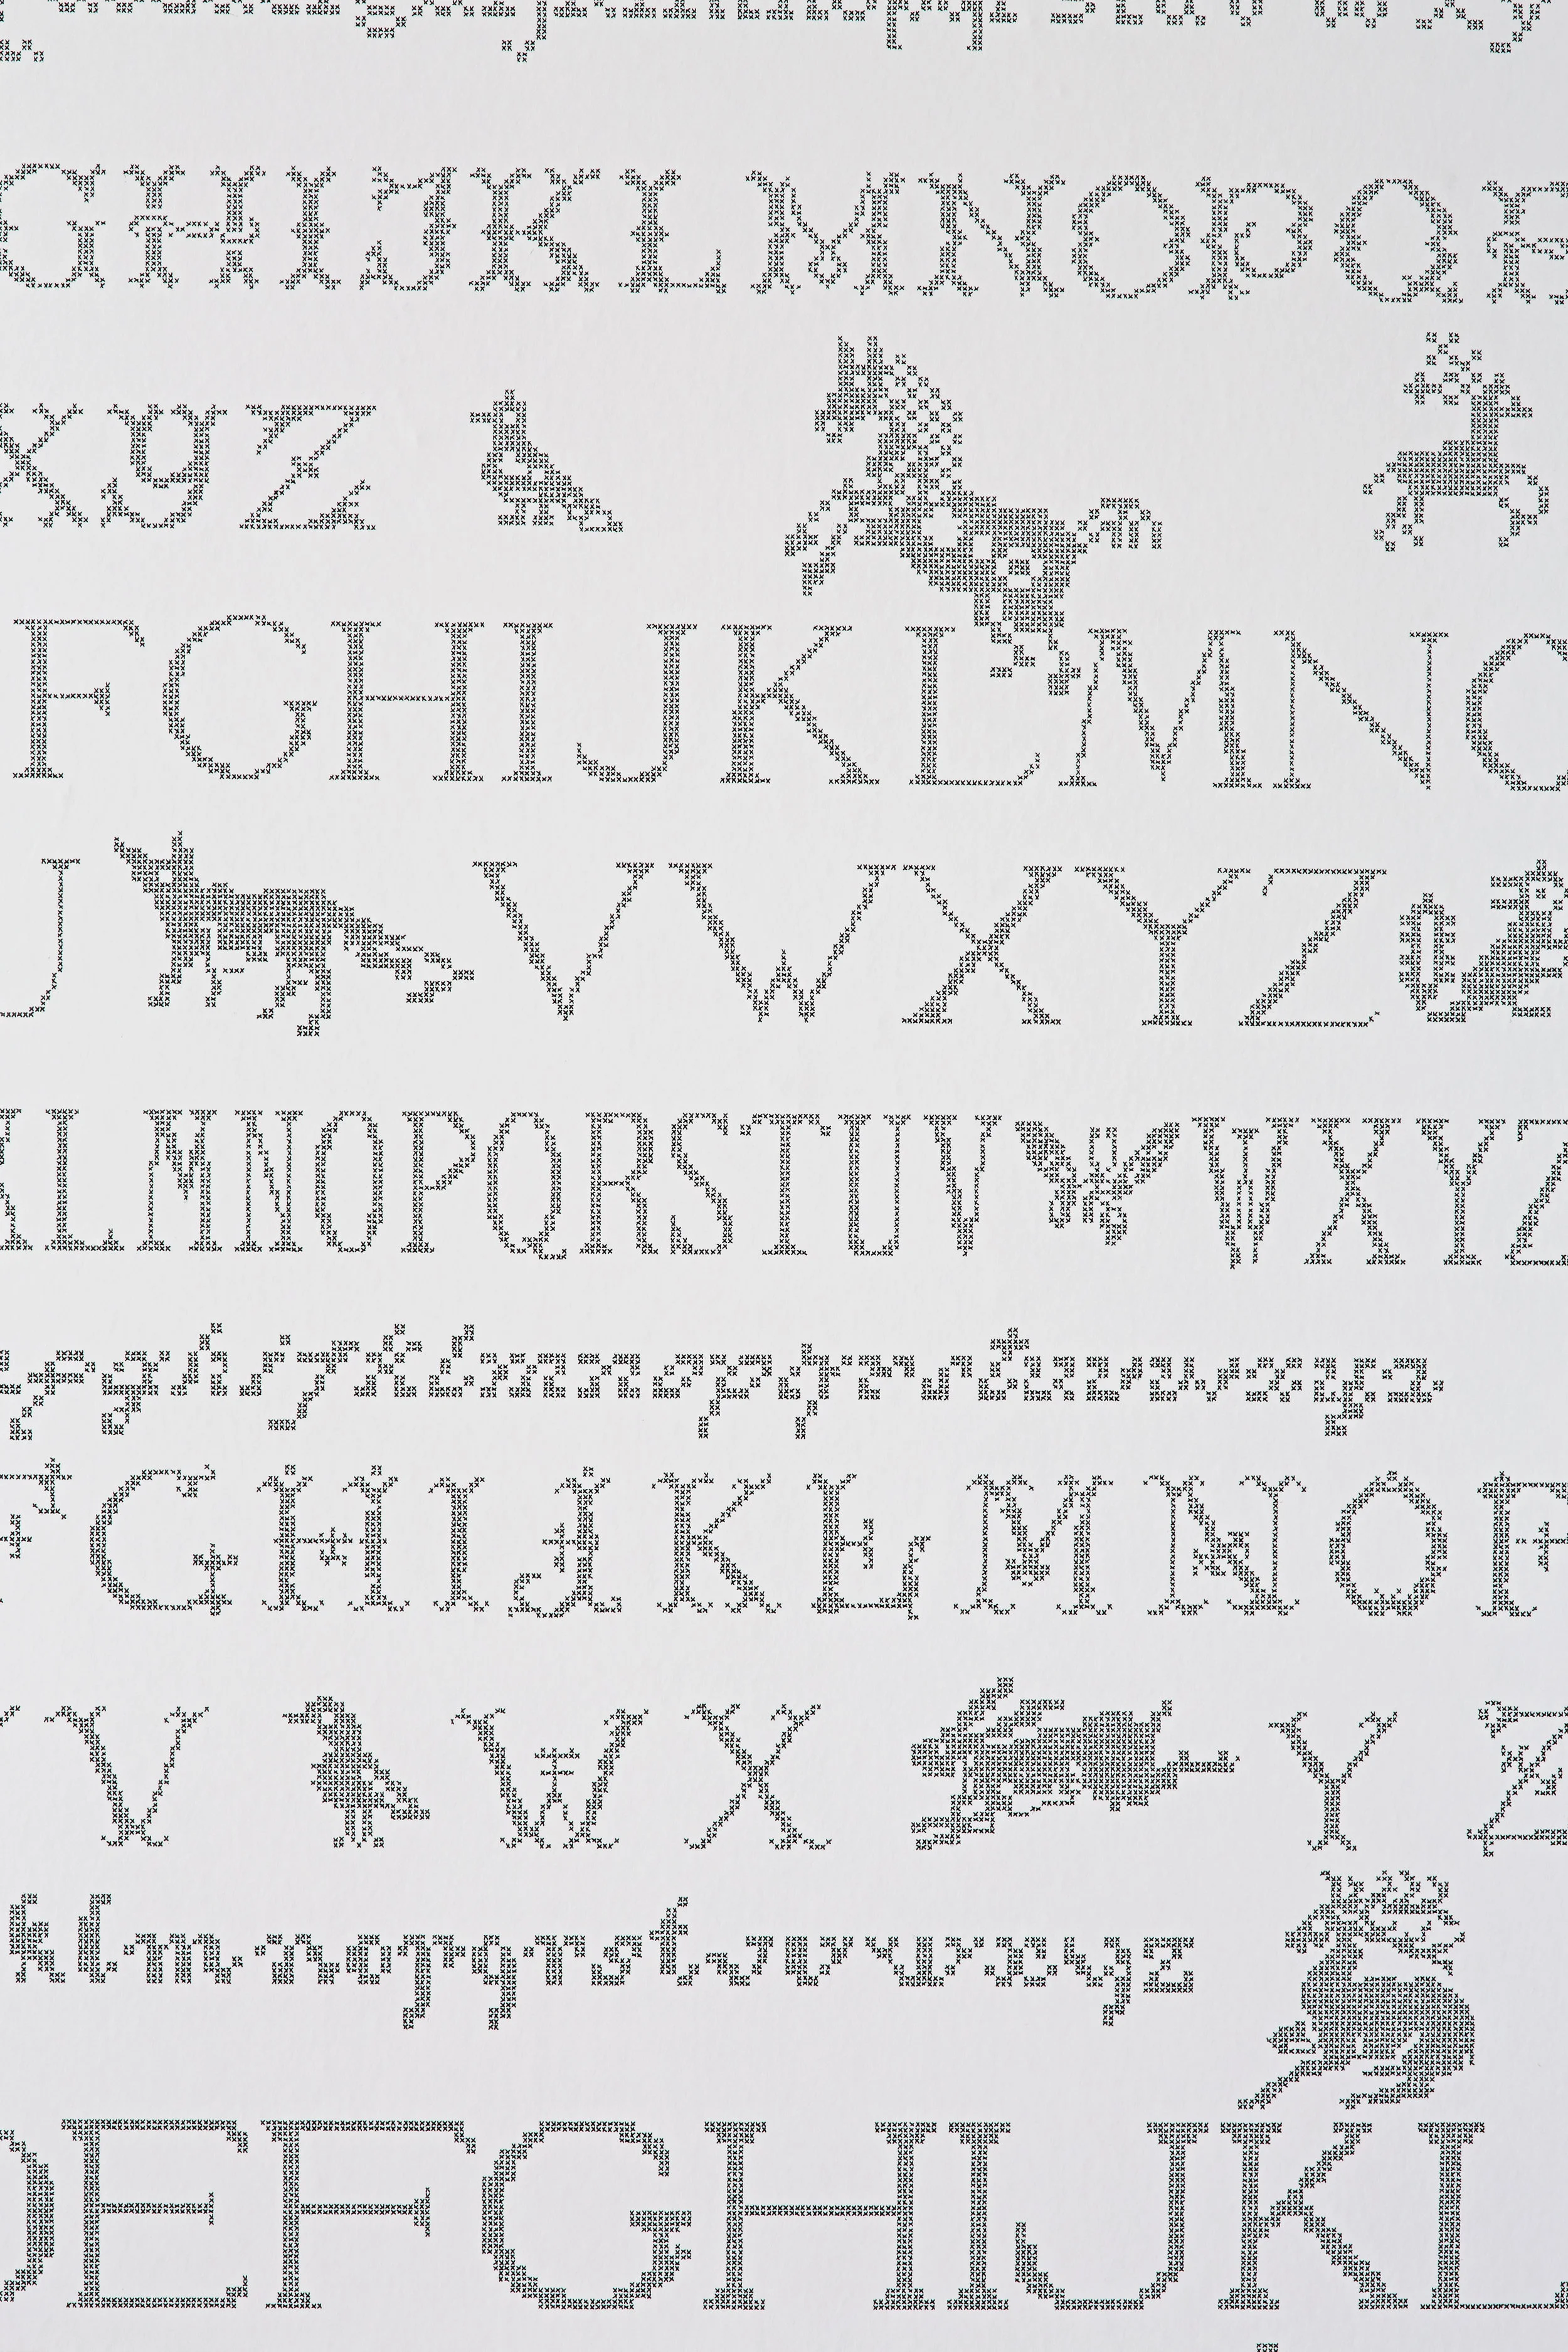 G H I J K L M N O P Q R
X Y Z
F G H I J K L M N O
U V W X Y Z
K L M N O P Q R S T U V W X Y Z
f g h i j k l m n o p q r s t u v w x y z
F G H I J K L M N O P
V W X Y Z
k l m n o p q r s t u v w x y z
D E F G H I J K L